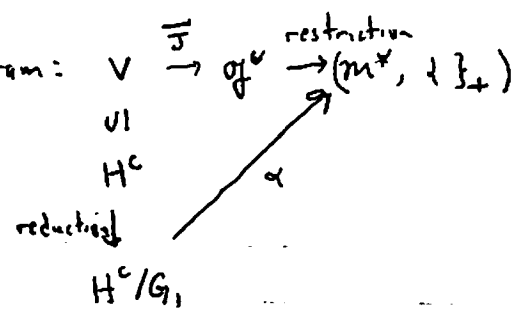 am: V →^{J̅} 𝔤* →^{restriction} (m*, { }₊)
∪|
Hᶜ
α
reduction↓
Hᶜ/G₁